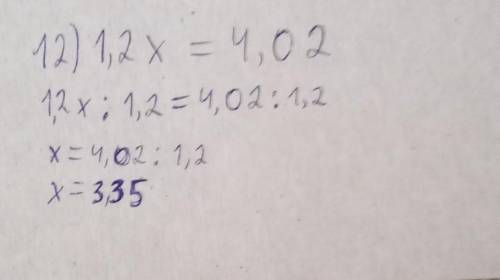 12) 1,2x = 4,02
1,2x : 1,2 = 4,02 : 1,2
x = 4,02 : 1,2
x = 3,35